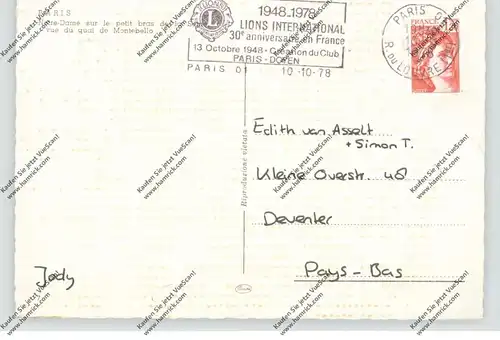 PARIS
Notre-Dame sur le petit bras de la Seine
vue du quai de Montebello
LIONS
L
INTERNATIONAL
1948-1978
LIONS INTERNATIONAL
30e anniversaire en France
13 Octobre 1948 - Création du Club
PARIS - DOYEN
PARIS 01 10-10-78
PARIS
R. DU LOUVRE
FRANCE
Riproduzione vietata
Edith van Asselt
+ Simon T.
Kleine Overstr. 48
Deventer
Pays-Bas
Jody
Kaufen Sie jetzt VueScan!
www.hamrick.com